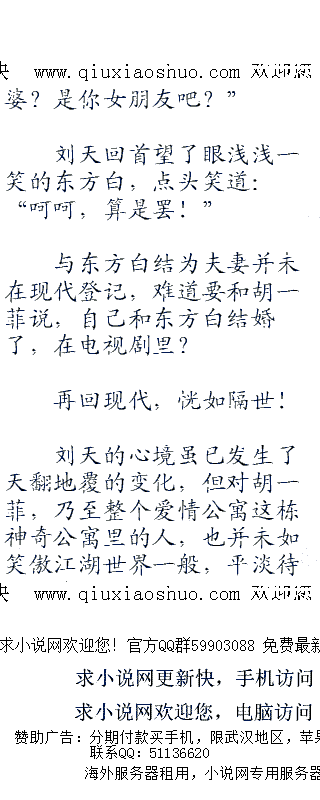 快 www.qiuxiaoshuo.com 欢迎您
婆？是你女朋友吧？”
刘天回首望了眼浅浅一
笑的东方白，点头笑道：
“呵呵，算是罢！”
与东方白结为夫妻并未
在现代登记，难道要和胡一
菲说，自己和东方白结婚
了，在电视剧里？
再回现代，恍如隔世！
刘天的心境虽已发生了
天翻地覆的变化，但对胡一
菲，乃至整个爱情公寓这栋
神奇公寓里的人，也并未如
笑傲江湖世界一般，平淡待
快 www.qiuxiaoshuo.com 欢迎您
求小说网欢迎您！官方QQ群59903088 免费最新
求小说网更新快，手机访问
求小说网欢迎您，电脑访问
赞助广告：分期付款买手机，限武汉地区，苹果
联系QQ：51136620
海外服务器租用，小说网专用服务器